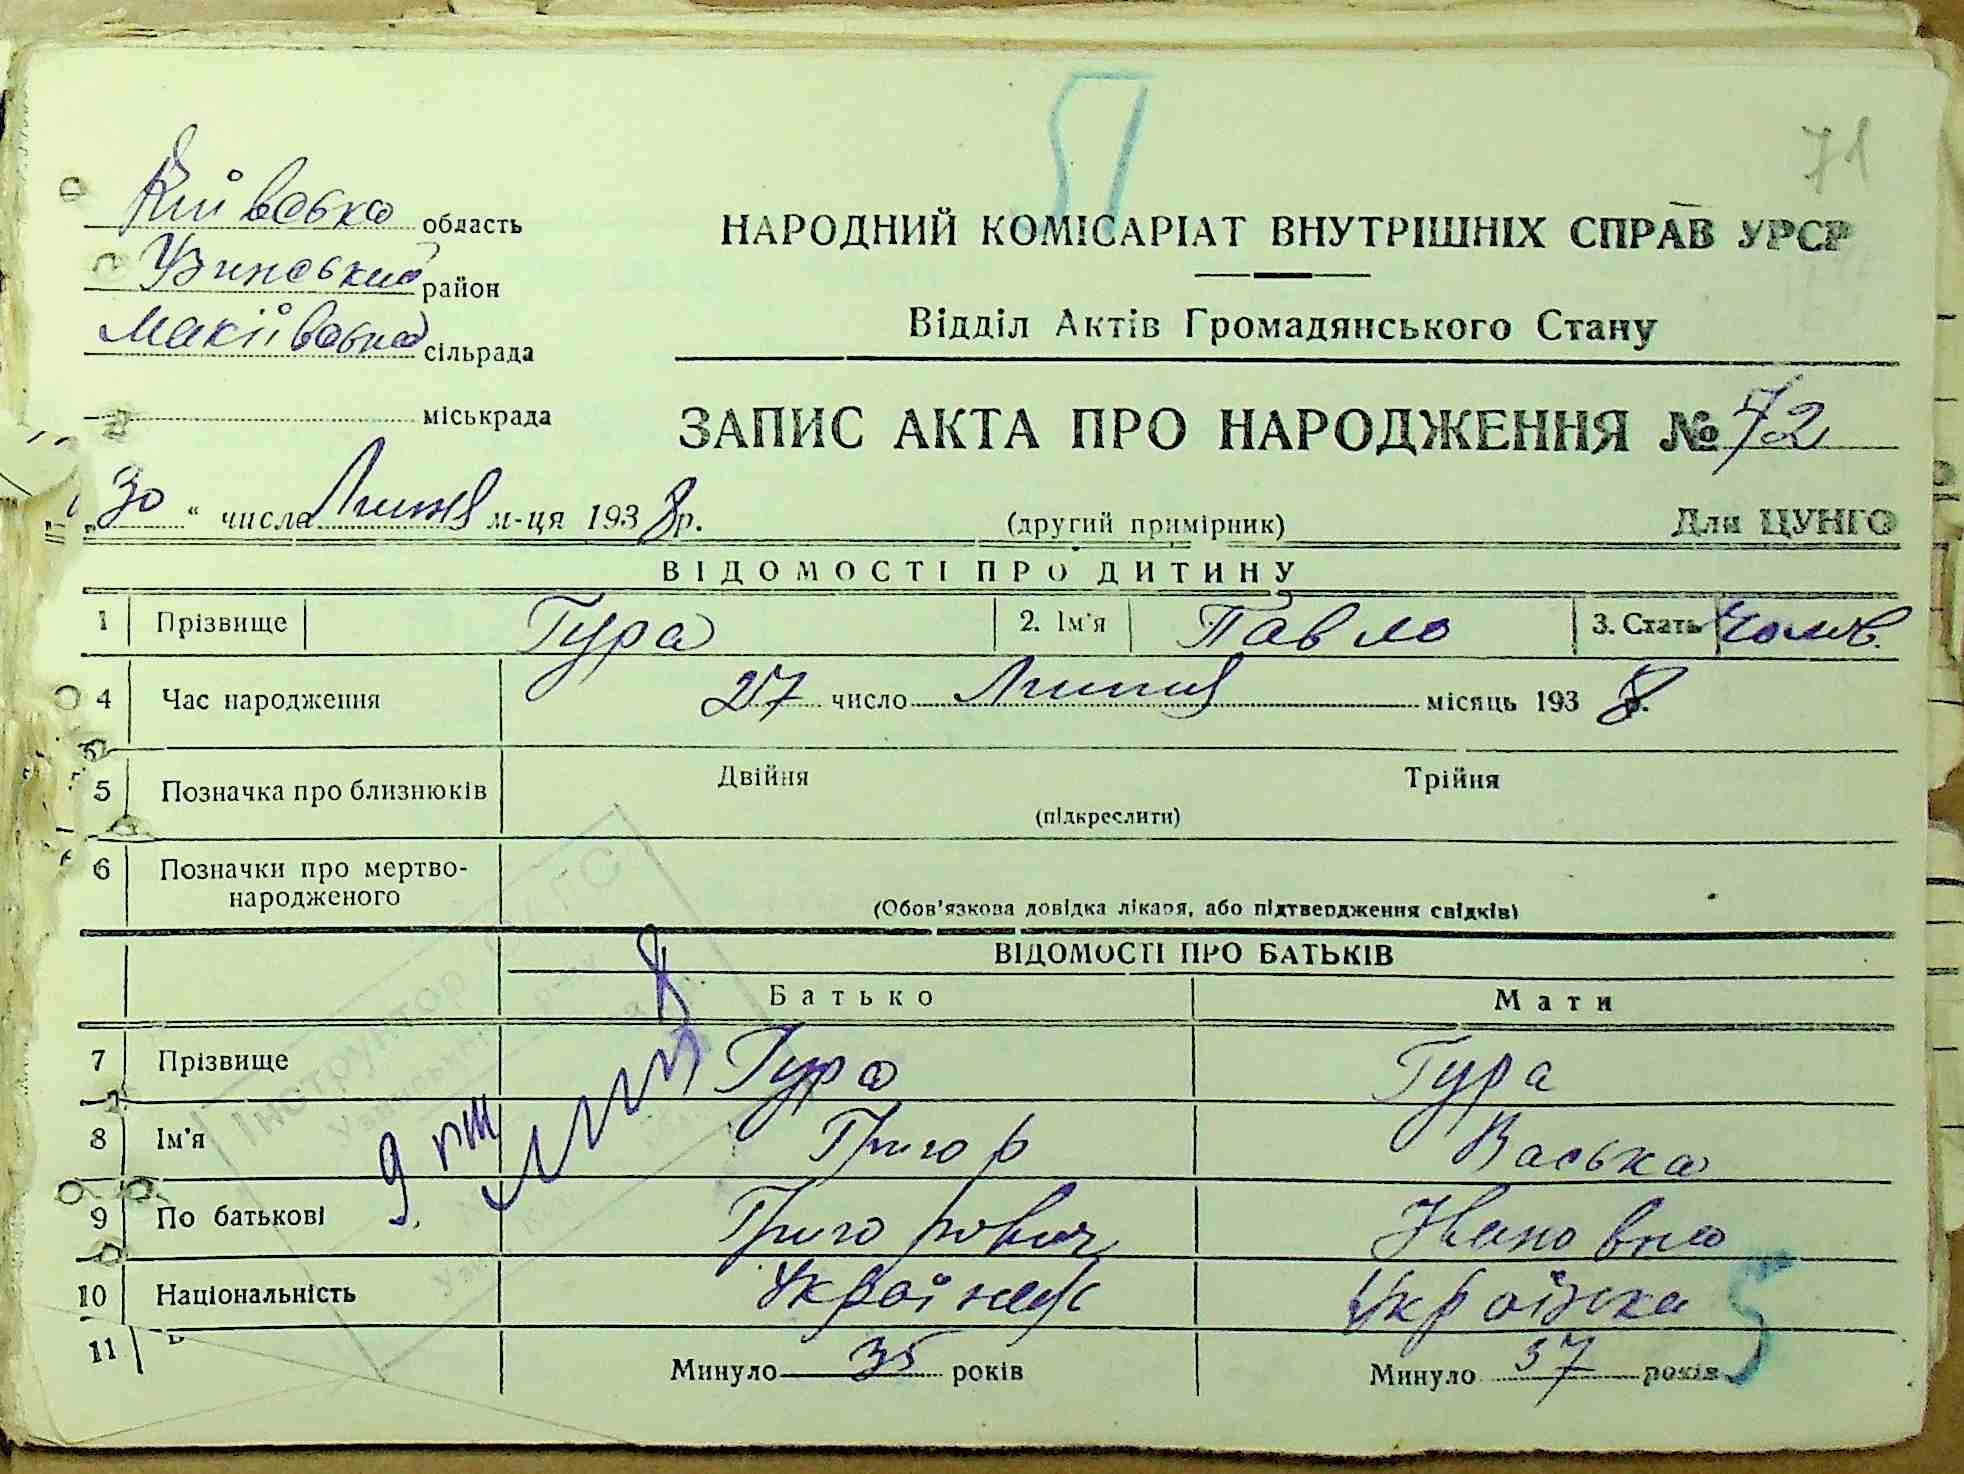 71
Київська область
Узинський район
Макіївська сільрада
міськрада
НАРОДНИЙ КОМІСАРІАТ ВНУТРІШНІХ СПРАВ УРСР
Відділ Актів Громадянського Стану
ЗАПИС АКТА ПРО НАРОДЖЕННЯ № 72
„30“ числа Липня м-ця 1938 р.
(другий примірник)
Для ЦУНГО
ВІДОМОСТІ ПРО ДИТИНУ
1 Прізвище Гура 2. Ім'я Павло 3. Стать Чолов.
4 Час народження 27 число Липня місяць 1938 р.
5 Позначка про близнюків Двійня Трійня
(підкреслити)
6 Позначки про мертво-
народженого
(Обов'язкова довідка лікаря, або підтвердження свідків)
ВІДОМОСТІ ПРО БАТЬКІВ
Батько Мати
7 Прізвище Гура Гура
8 Ім'я Григор Васька
9 По батькові Григорович Івановна
10 Національність Українець Українка
11 Минуло 35 років Минуло 37 років
Інструктор
5